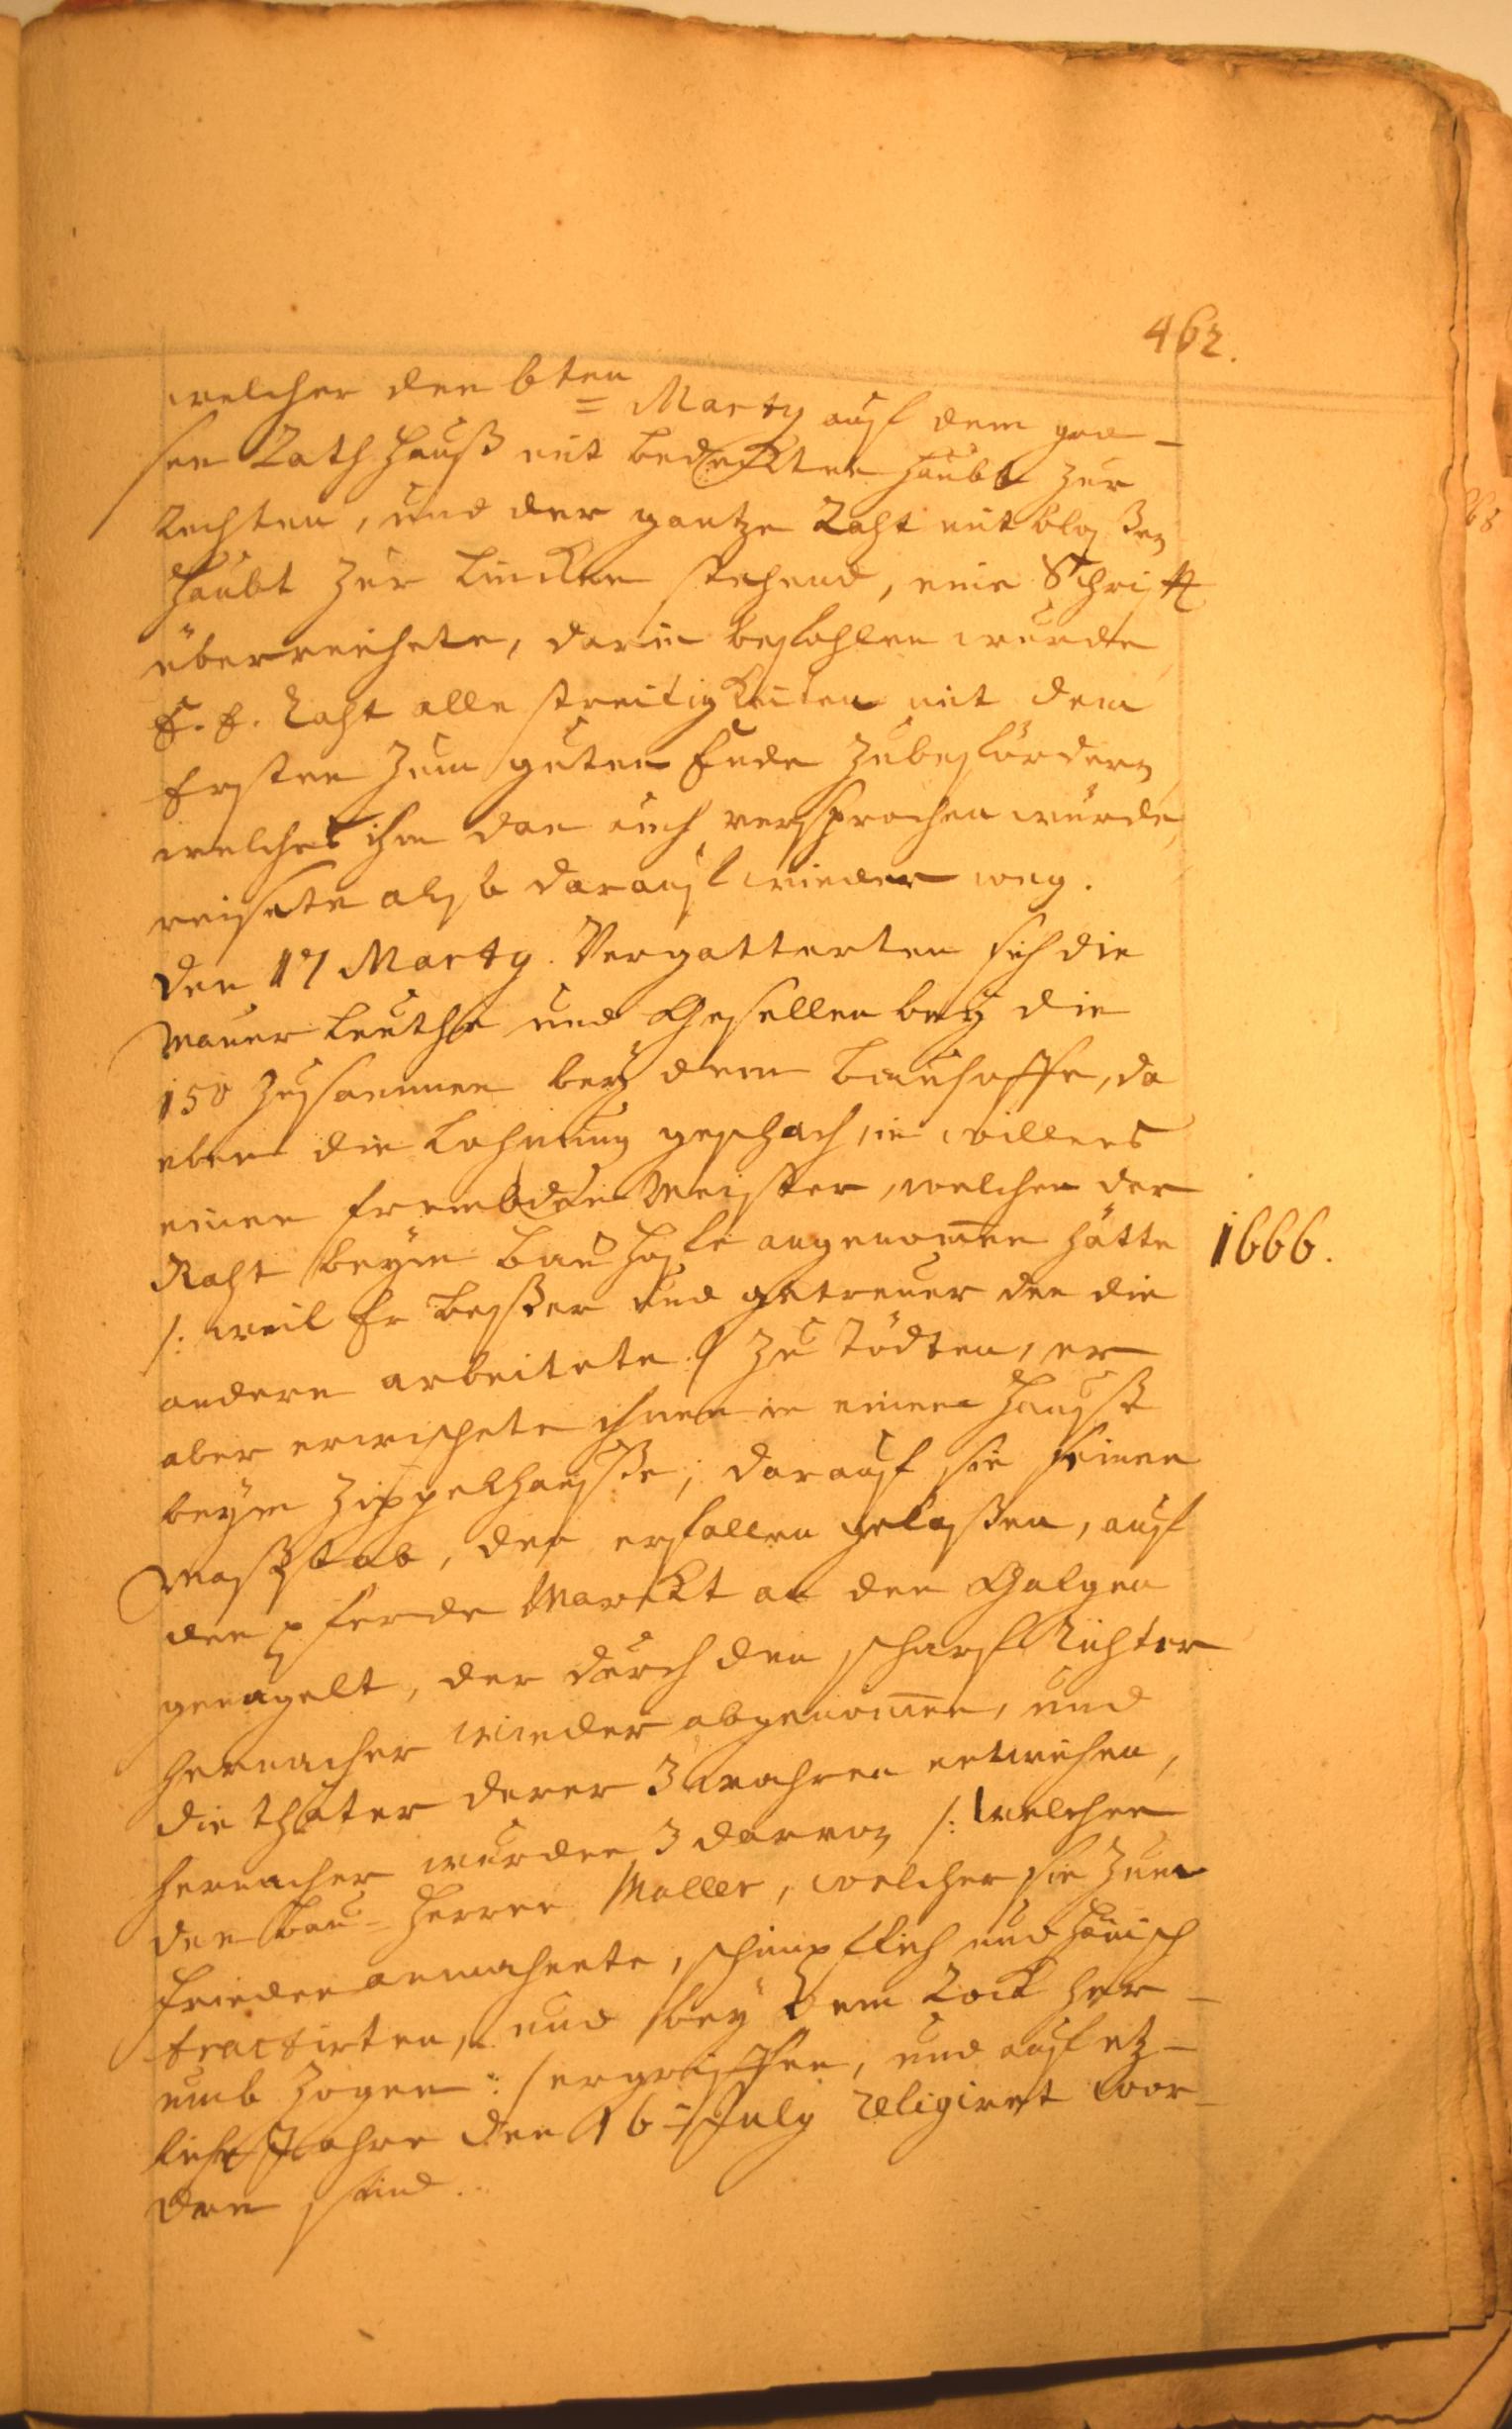 462.
welcher den 6ten
= Marty auf dem gro-
sen Rath Hauß mit bedeckten Haubt zur
Rechten, und der gantze Raht mit bloßen
Haubt zur Lincken stehend, eine Schrifft
überreichete, darin befohlen wurde
E. E. Raht alle streitigkeiten mit dem
Ersten zum guten Ende zubefördern,
welches ihm dan auch versprochen wurde,
reisete also darauf wieder weg.
Den 17 Marty. Vergatterten sich die
Maurer Leuthe und Gesellen bey die
150 zusammen bey dem Bauhoffe, da
eben die Lohnung geschach, in willens
einen frembden Meister, welchen der
Raht beym Bau Hofe angenomen hätte
1666.
/: weil Er besser und getreuer den die
andern arbeitete :/ zu Tödten, er
aber erwischete ihnen in einen Hauße
beym Zippelhauße; darauf sie seinen
Maßstab, den er fallen gelaßen, auf
den pferde Marckt an den Galgen
genagelt, der durch den scharf Richter
hernacher wieder abgenomen, und
die thäter derer 3 wahren entwichen,
hernacher wurden 3 darvon /: welchen
den Bau-Herren Moller, welcher sie zum
frieden anmahnte, schimpflich und hönisch
tractirten, und bey dem Rock her-
umb zogen :/ ergriffen, und auf etz-
liche Jahre den 16 = July religiret wor-
den sind.